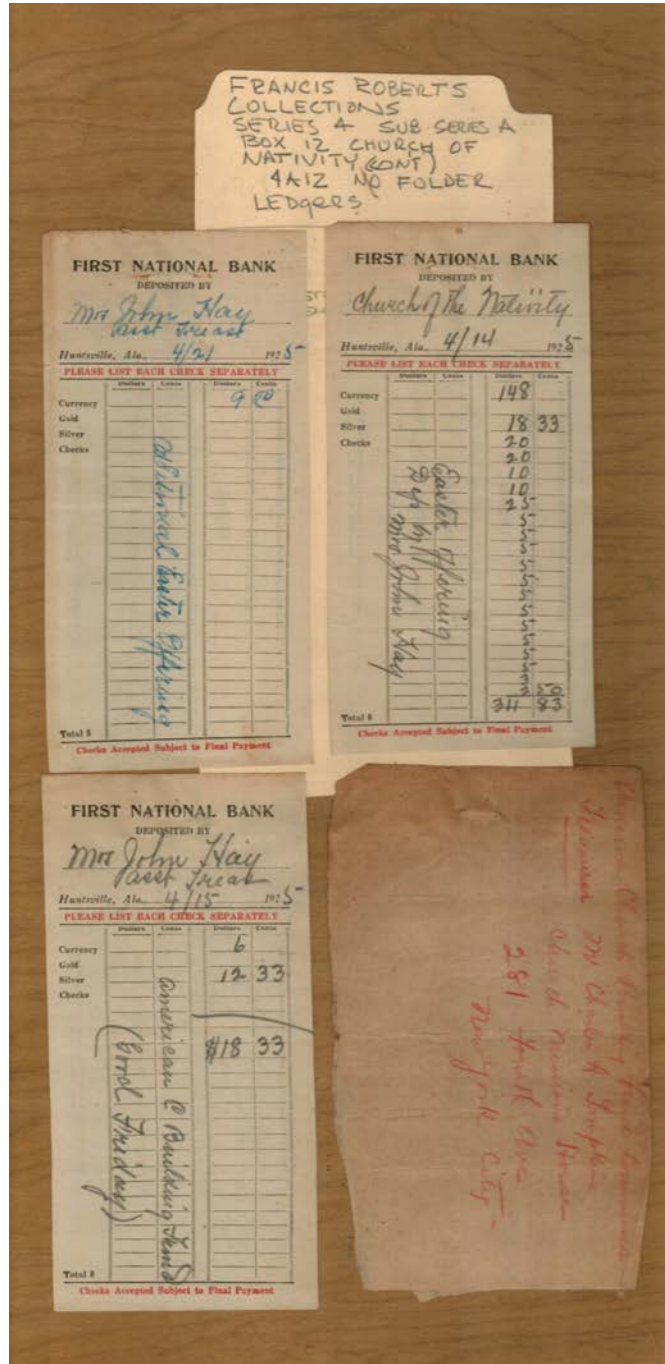 FRANCIS ROBERTS
COLLECTIONS
SERIES 4 SUB SERIES A
BOX 12 CHURCH OF
NATIVITY (CONT)
4A12 NO FOLDER
LEDgeRS
FIRST NATIONAL BANK
DEPOSITED BY
Mrs John Hay
Asst Treas
Huntsville, Ala. 4/21 1925
PLEASE LIST EACH CHECK SEPARATELY
Dollars Cents Dollars Cents
Currency 9
Gold
Silver
Checks
Additional Easter Offering
Total $
Checks Accepted Subject to Final Payment
FIRST NATIONAL BANK
DEPOSITED BY
Church of the Nativity
Huntsville, Ala. 4/14 1925
PLEASE LIST EACH CHECK SEPARATELY
Dollars Cents Dollars Cents
Currency 148
Gold
Silver 18 33
Checks 20
20
10
10
25
5
5
5
5
5
5
5
5
5
5
5
50
Easter Offering
Dep by
Mrs John Hay
311 83
Total $
Checks Accepted Subject to Final Payment
FIRST NATIONAL BANK
DEPOSITED BY
Mrs John Hay
Asst Treas
Huntsville, Ala. 4/15 1925
PLEASE LIST EACH CHECK SEPARATELY
Dollars Cents Dollars Cents
Currency 6
Gold
Silver 12 33
Checks
$18 33
American C Building Fund
(Good Friday)
Total $
Checks Accepted Subject to Final Payment
American Church Building Fund Commission
Treasurer Mr Charles A Tompkins
Church Missions House
281 Fourth Ave
New York City